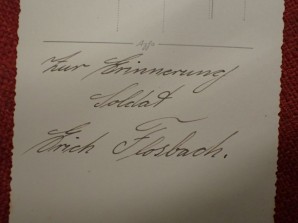 Zur Erinnerung
Soldat
Erich Flosbach.